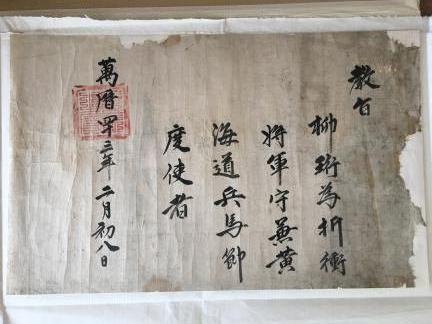 教旨
柳珩為折衝
將軍守兼黃
海道兵馬節
度使者
萬曆四十三年二月初八日